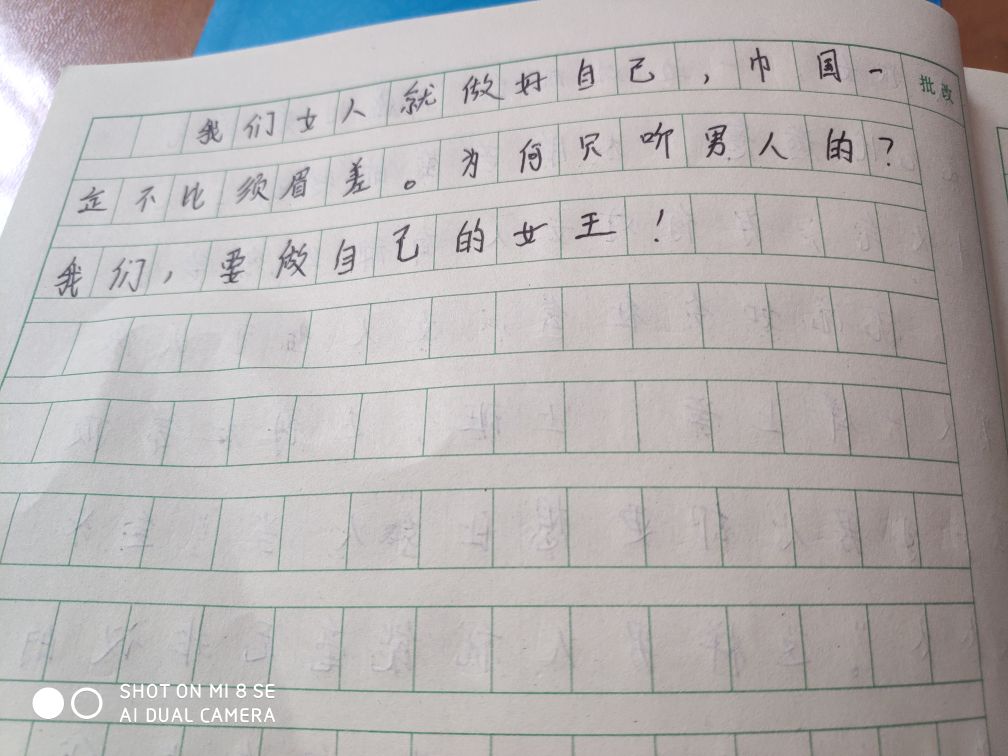 批改
我们女人就做好自己，巾国一
定不比须眉差。为何只听男人的？
我们，要做自己的女王！
SHOT ON MI 8 SE
AI DUAL CAMERA